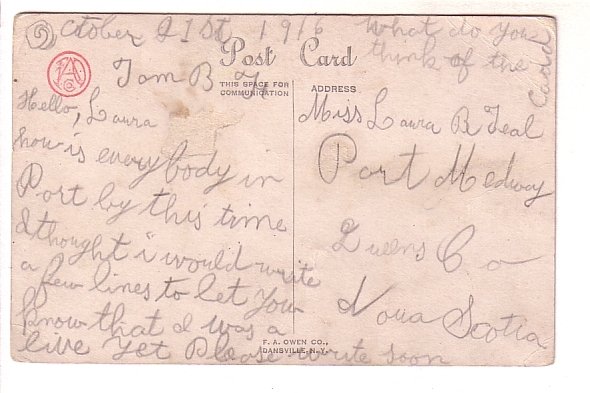 October 21st 1916
What do you
think of the
Card
Post Card
THIS SPACE FOR
COMMUNICATION
ADDRESS
Tom B
Hello, Laura
how is everybody in
Port by this time
I thought i would write
a few lines to let you
know that I was a
live yet Please write soon
Miss Laura B Teal
Port Medway
Queens Co
Nova Scotia
F. A. OWEN CO.,
DANSVILLE, N.Y.